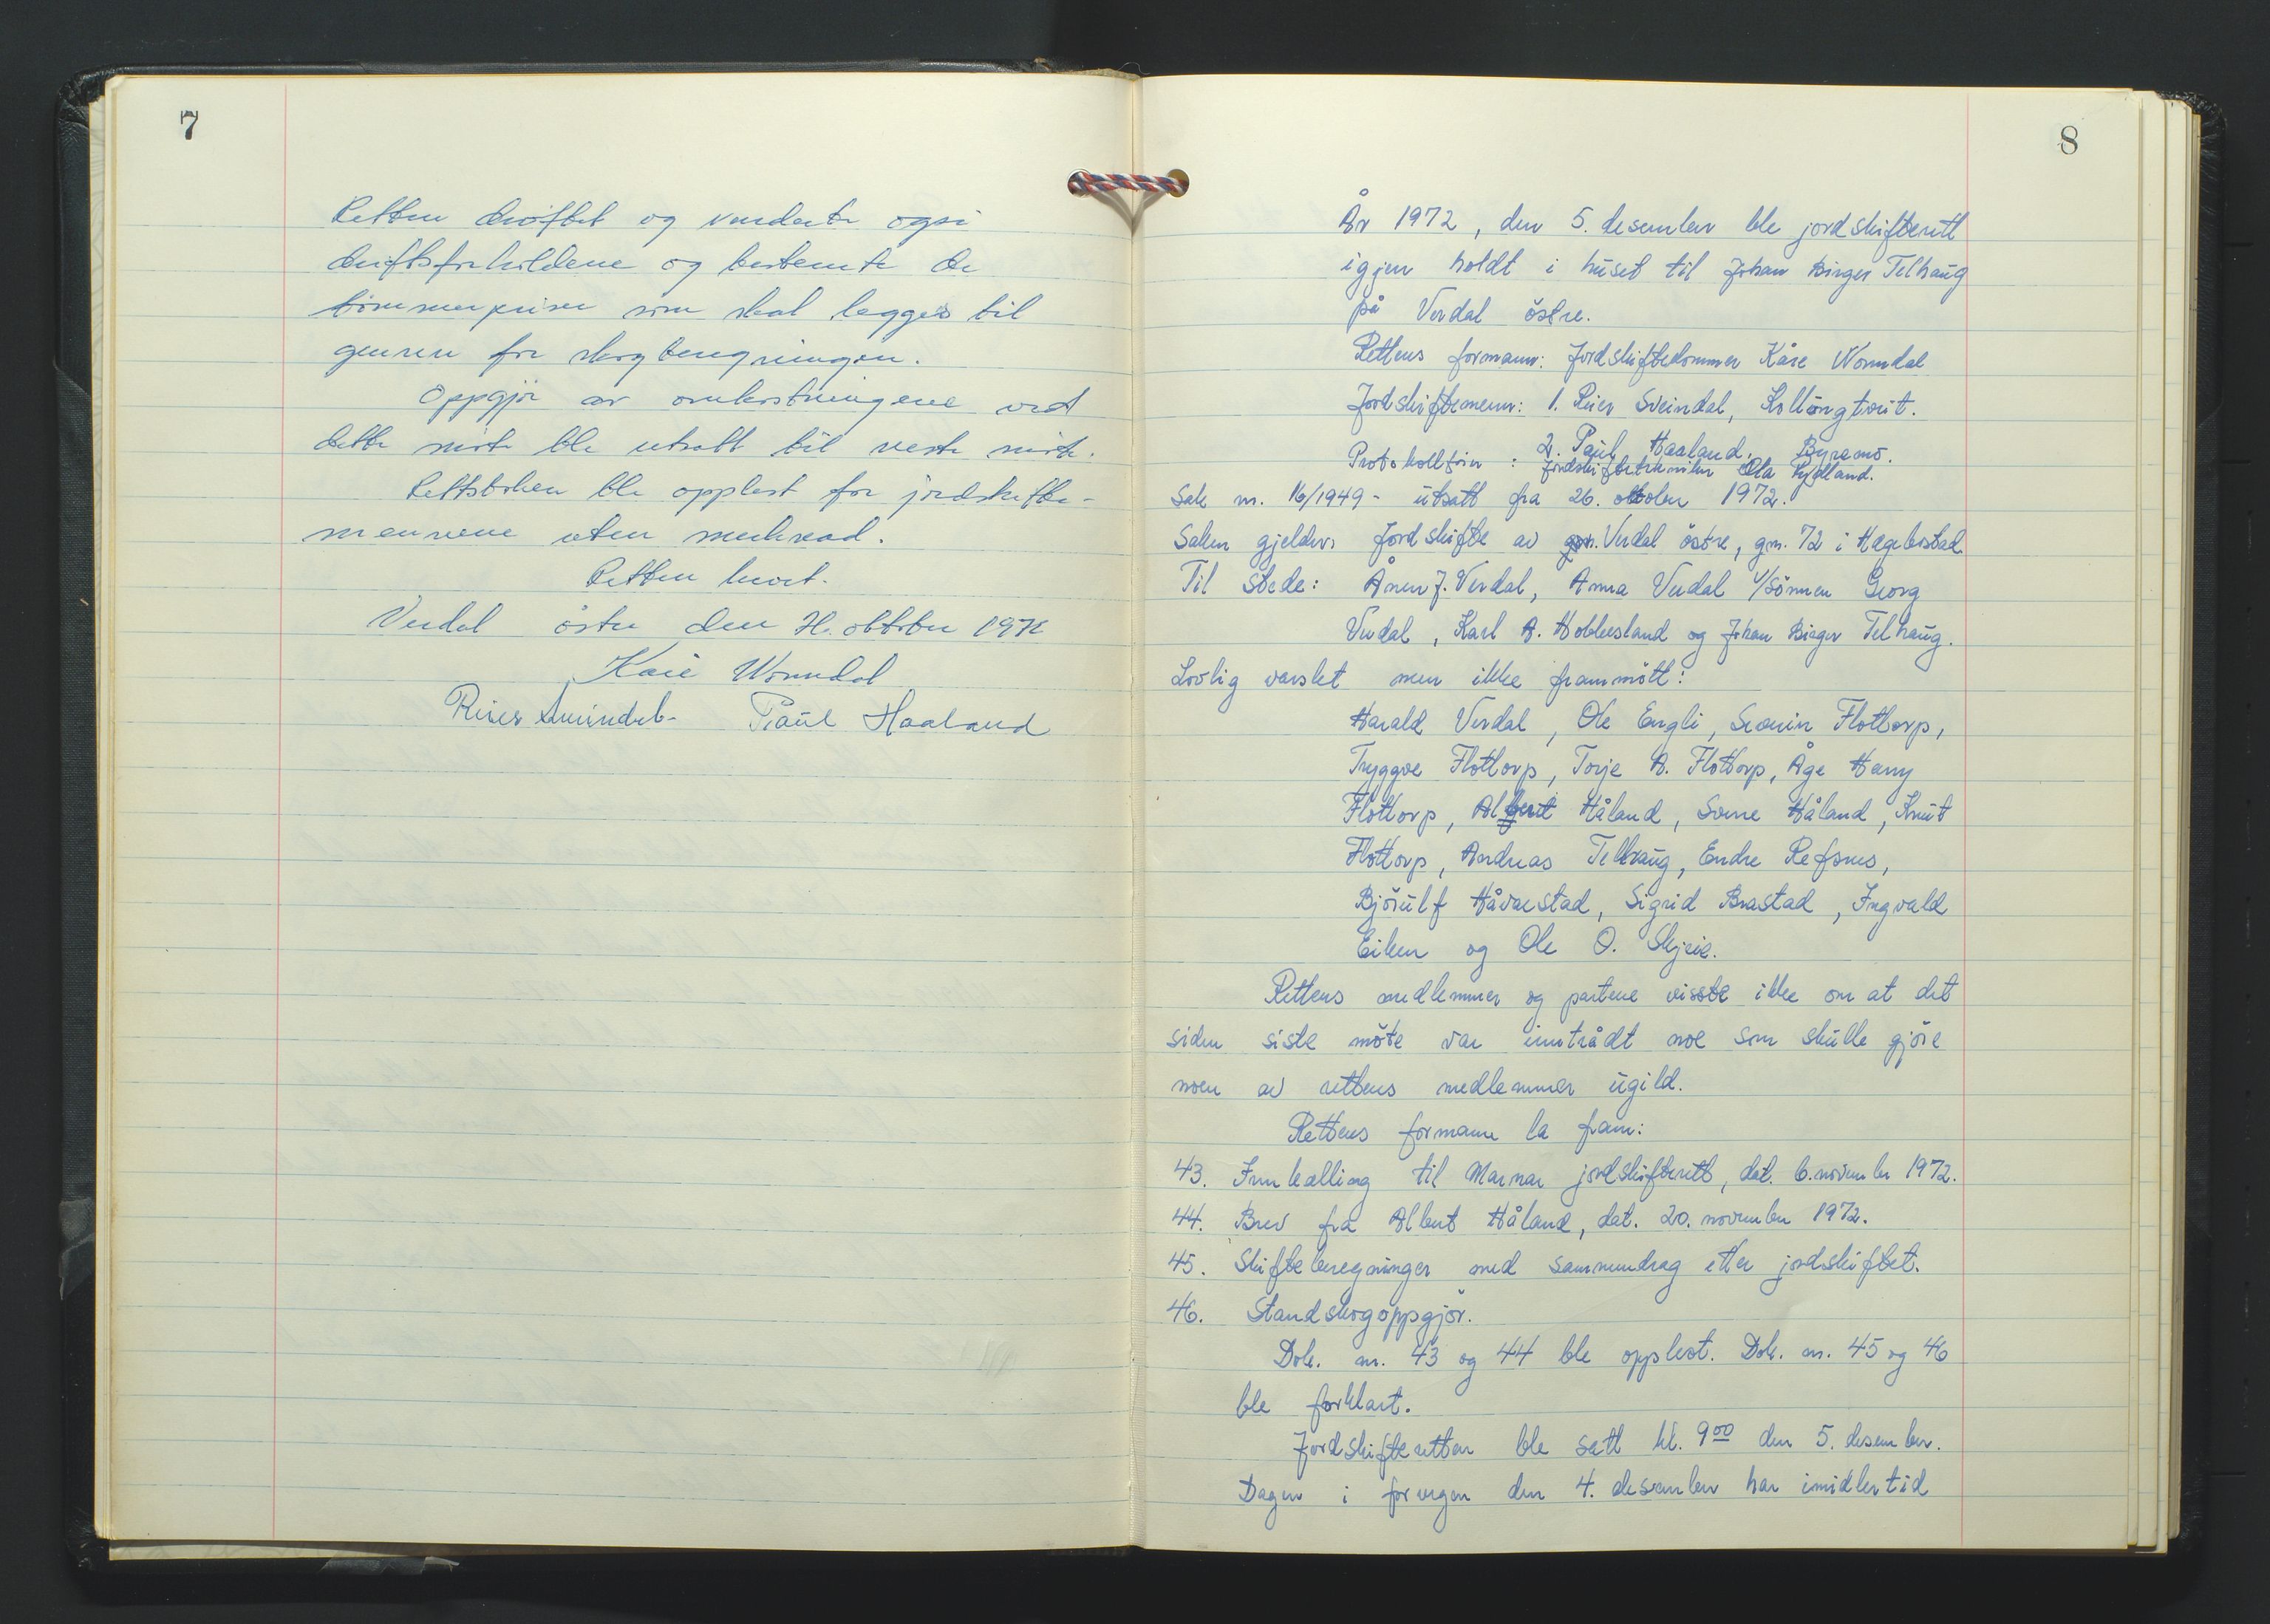 7
Retten drøftet og vurderte også
driftsforholdene og bestemte de
tømmerpriser som skal legges til
grunn for skogberegningen.
Oppgjør av omkostningene ved
dette møte ble utsatt til neste møte.
Rettsboken ble opplest for jordskifte-
mennene uten merknad.
Retten hevet.
Verdal östre den 26. oktober 1972
Kåre Wormdal
Reier Sveindal Paul Haaland
8
År 1972, den 5. desember ble jordskifterett
igjen holdt i huset til Johan Birger Telhaug
på Verdal östre.
Rettens formann: Jordskiftedommer Kåre Wormdal
Jordskiftemenn: 1. Reier Sveindal, Kollungtveit.
2. Paul Haaland, Byremo.
Protokollfører: Jordskiftetekniker Ola Rydland.
Sak nr. 16/1949 - utsatt fra 26. oktober 1972.
Saken gjelder: Jordskifte av Verdal östre, gnr. 72 i Hægebostad
Til stede: Ånen J. Verdal, Anna Verdal v/sönnen Georg
Verdal, Karl A. Hobbesland og Johan Birger Telhaug.
Lovlig varslet men ikke frammött:
Harald Verdal, Ole Engli, Flottorp,
Tryggve Flottorp, Torje A. Flottorp, Åge Harry
Flottorp, Albert Håland, Sverre Håland, Knut
Flottorp, Andreas Telhaug, Endre Refsnes,
Björulf Håvarstad, Sigrid Brastad, Ingvald
Eiken og Ole O. Skjeie.
Rettens medlemmer og partene visste ikke om at det
siden siste möte var inntrådt noe som skulle gjöre
noen av rettens medlemmer ugild.
Rettens formann la fram:
43. Innkalling til Marnar jordskifterett, dat. 6. november 1972.
44. Brev fra Albert Håland, dat. 20. november 1972.
45. Skifteberegninger med sammendrag etter jordskiftet.
46. Standskogoppgjör.
Dok. nr. 43 og 44 ble opplest. Dok. nr. 45 og 46
ble forklart.
Jordskifteretten ble satt kl. 9⁰⁰ den 5. desember.
Dagen i forvegen den 4. desember har imidlertid